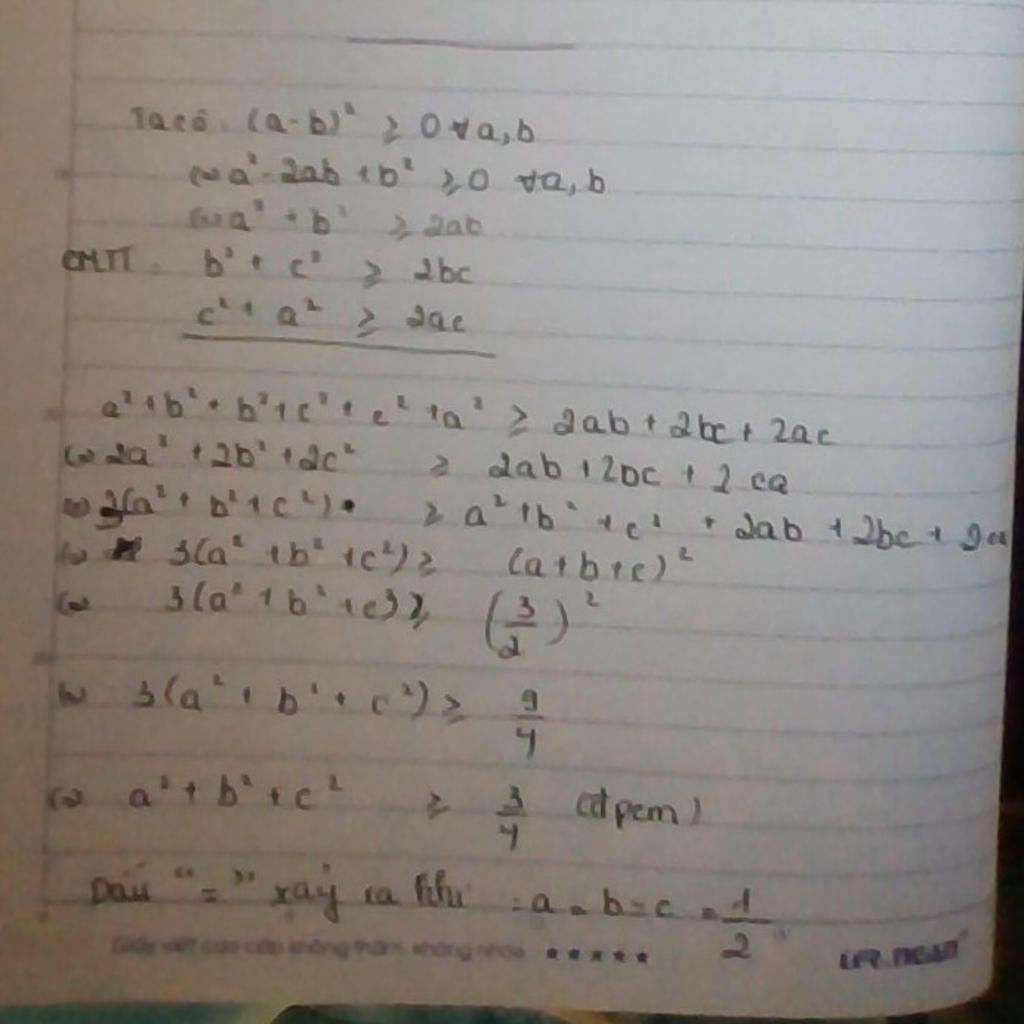 Ta có: (a-b)² ≥ 0 ∀a,b
⇔ a²-2ab+b² ≥ 0 ∀a,b
⇔ a² + b² ≥ 2ab
CMTT: b² + c² ≥ 2bc
c² + a² ≥ 2ac
a²+b²+b²+c²+c²+a² ≥ 2ab+2bc+2ac
⇔ 2a²+2b²+2c² ≥ 2ab+2bc+2ca
⇔ 3(a²+b²+c²) ≥ a²+b²+c²+2ab+2bc+2ca
⇔ 3(a²+b²+c²) ≥ (a+b+c)²
⇔ 3(a²+b²+c²) ≥ (3/2)²
⇔ 3(a²+b²+c²) ≥ 9/4
⇔ a²+b²+c² ≥ 3/4 (đpcm)
Dấu "=" xảy ra khi: a=b=c=1/2
Giấy viết cao cấp không thấm, không nhòe ★★★★★